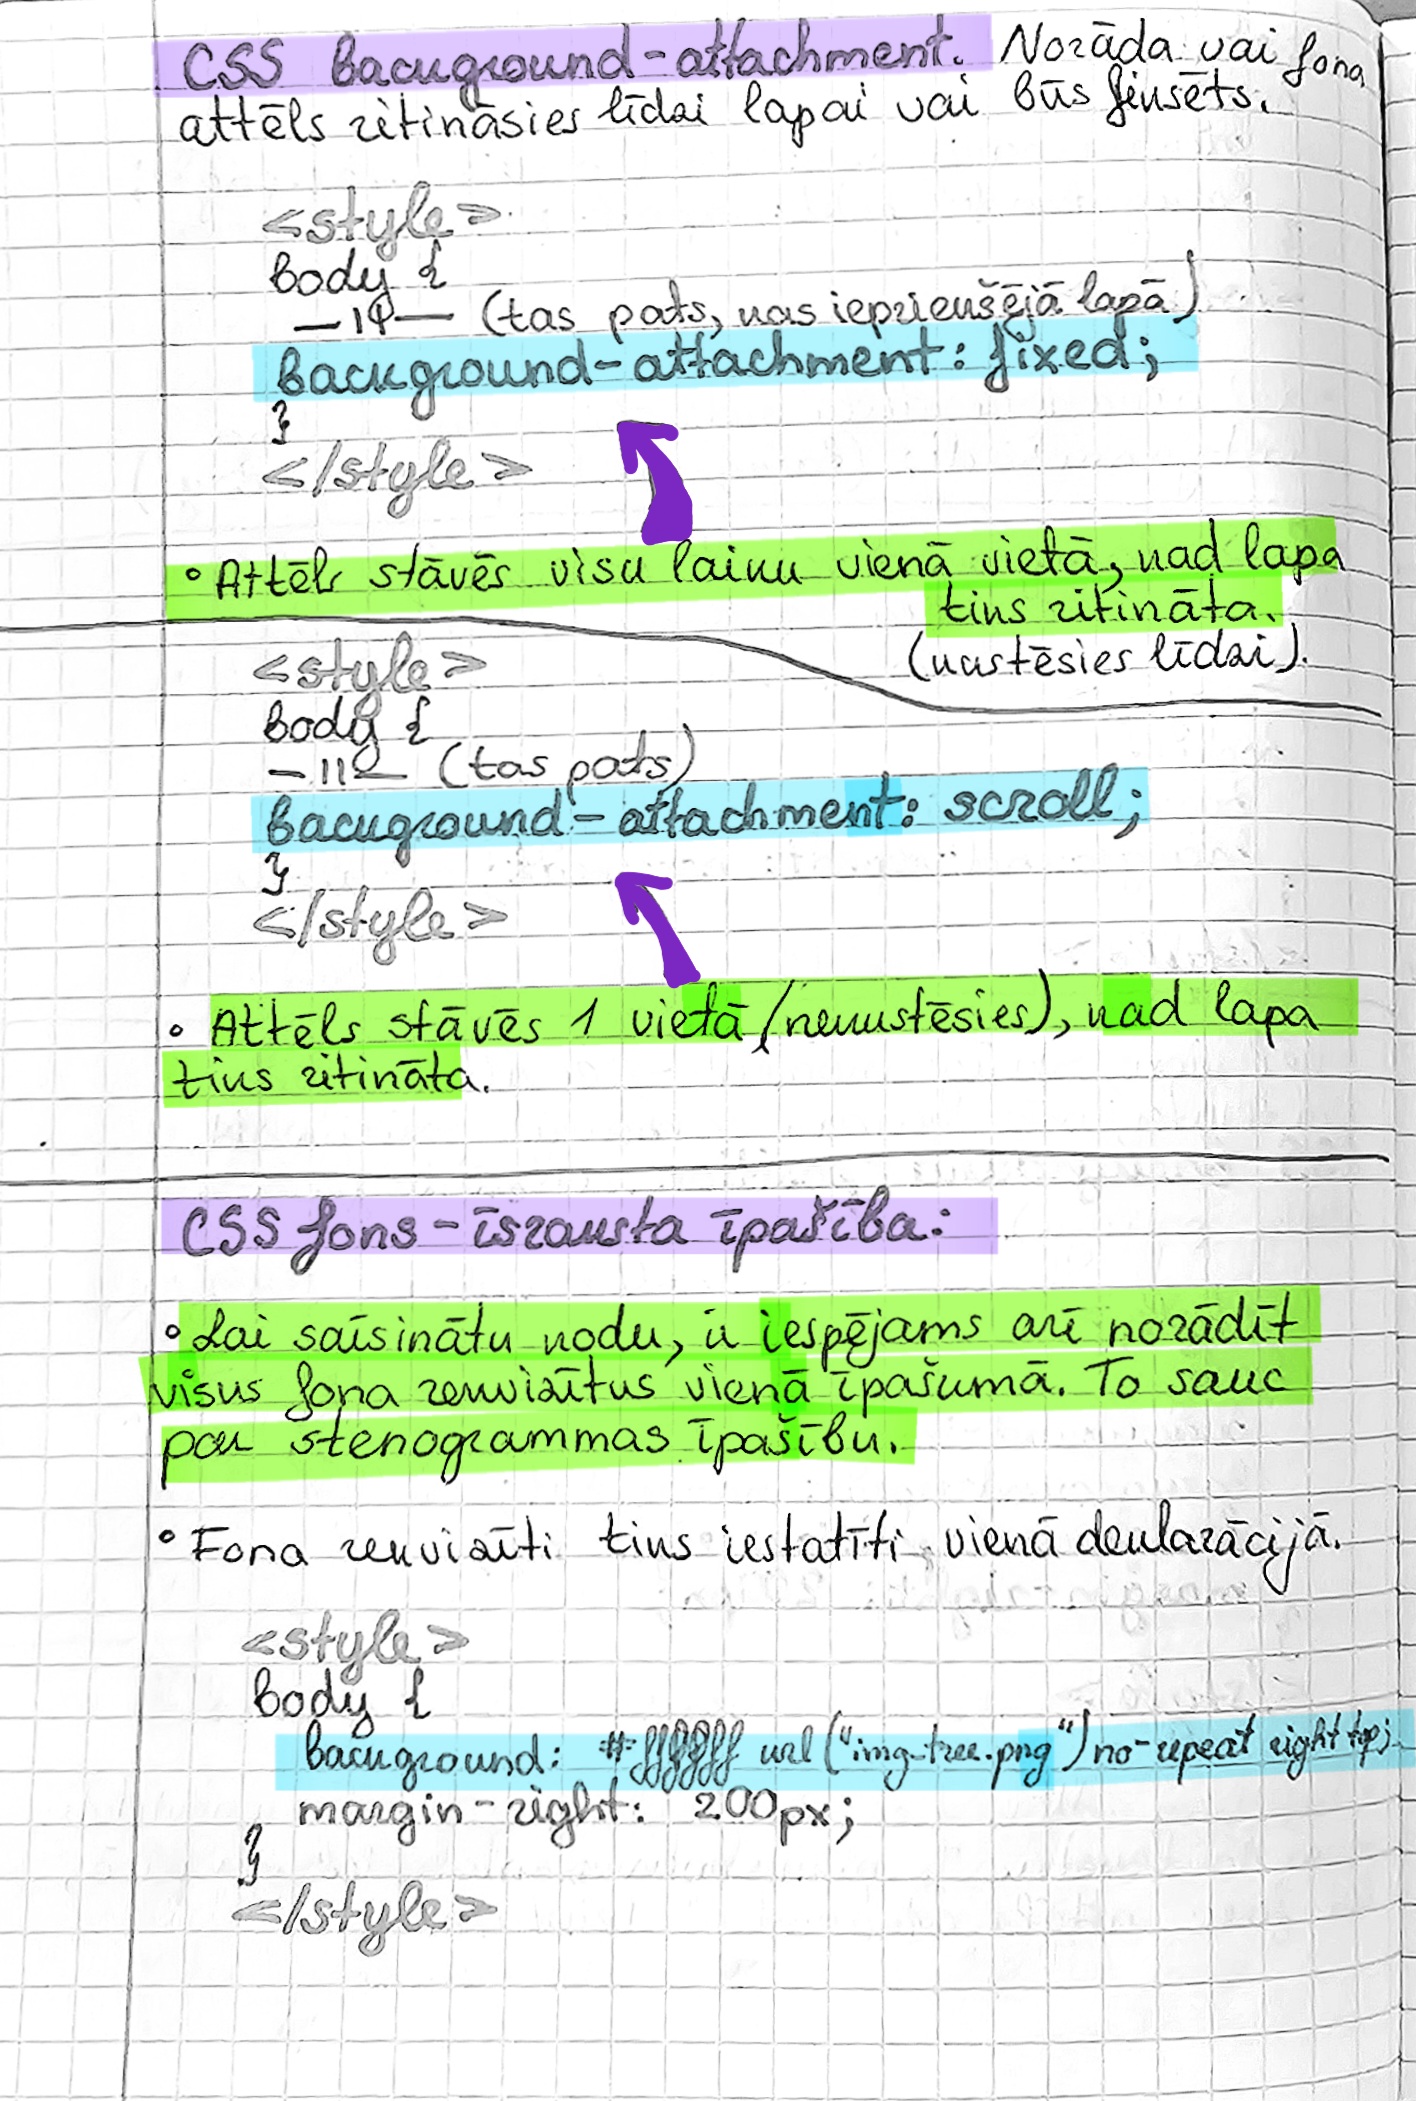 CSS background-attachment. Norāda vai fona
attēls ritināsies līdzi lapai vai būs fiksēts.
<style>
body {
—||— (tas pats, kas iepriekšējā lapā)
background-attachment: fixed;
}
</style>
• Attēls stāvēs visu laiku vienā vietā, kad lapa
tiks ritināta.
(kustēsies līdzi).
<style>
body {
—||— (tas pats)
background-attachment: scroll;
}
</style>
• Attēls stāvēs 1 vietā (nekustēsies), kad lapa
tiks ritināta.
CSS fons - īsraksta īpašība:
• Lai saīsinātu kodu, ir iespējams arī norādīt
visus fona rekvizītus vienā īpašumā. To sauc
par stenogrammas īpašību.
• Fona rekvizīti tiks iestatīti vienā deklarācijā.
<style>
body {
background: #ffffff url("img-tree.png") no-repeat right top;
margin-right: 200px;
}
</style>